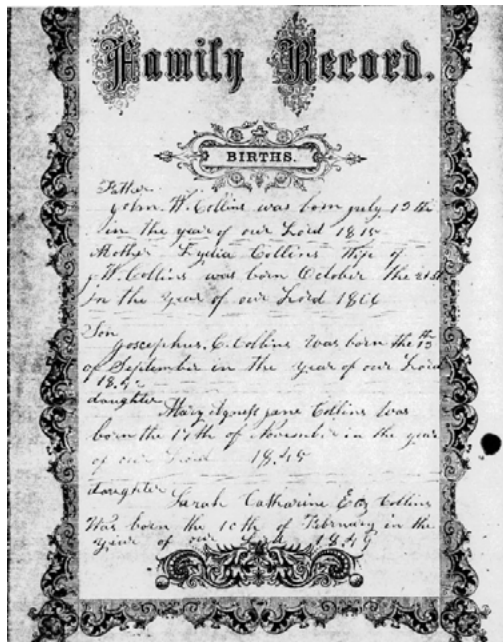 Family Record.
BIRTHS.
Father
John W. Collins was born july 13 th
in the year of our Lord 1815
Mother Lydia Collins Wife of
J. W. Collins was born October the 21st
in the year of our Lord
Son
Joscephus. C. Collins was born the 13 th
of September in the year of our Lord
18
daughter
Mary Agness jane Collins was
born the 17th of November in the year
of our Lord 1845
daughter
Sarah Catharine Collins
Was born the 10th of February in the
year of our Lord 1849